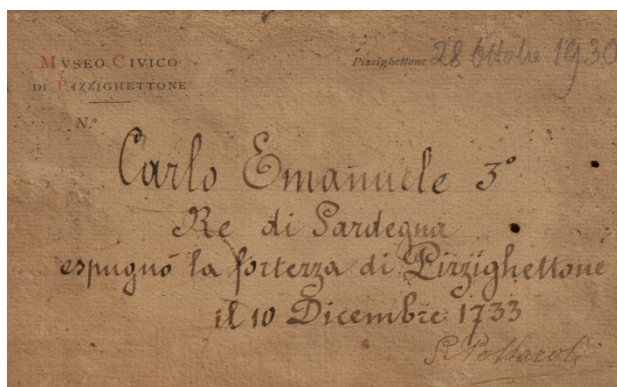 MVSEO CIVICO
DI PIZZIGHETTONE
Pizzighettone 28 Ottobre 1930
N.º
Carlo Emanuele 3º
Re di Sardegna
espugnò la fortezza di Pizzighettone
il 10 Dicembre 1733